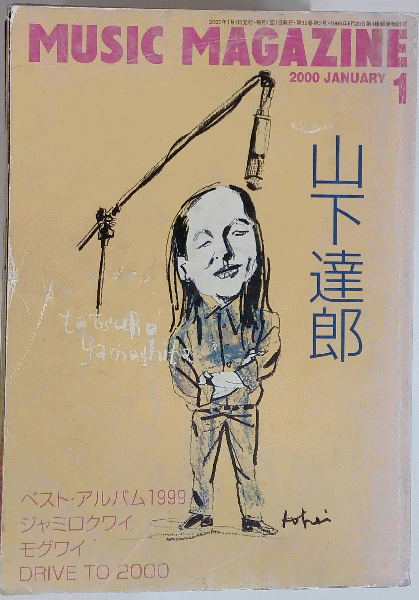 2000年1月1日発行・毎月1回1日発行・第32巻第2号・1969年6月20日第3種郵便物認可
MUSIC MAGAZINE
2000 JANUARY
1
山下達郎
tatsuRo
yamashita
ベスト・アルバム1999
ジャミロクワイ
モグワイ
DRIVE TO 2000
tohei